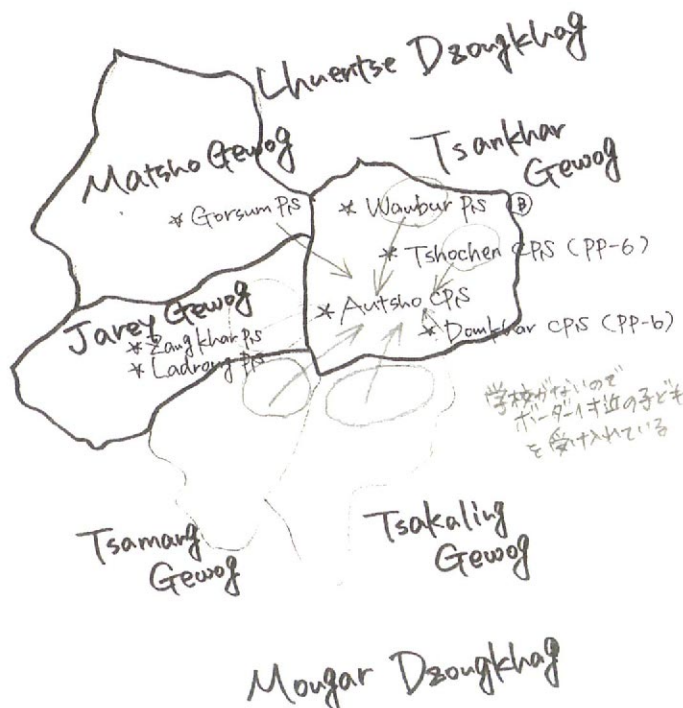 Lhuentse Dzongkhag
Matsho Gewog
Tsankhar
Gewog
* Gorsum P.S
* Waubur P.S
B
* Tshochen CP.S (PP-6)
* Autsho CP.S
* Domkhar CP.S (PP-6)
Jarey Gewog
* Zangkhar P.S
* Ladrong P.S
学校がないので
ボーダー付近の子ども
を受け入れている
Tsamang
Gewog
Tsakaling
Gewog
Mongar Dzongkhag